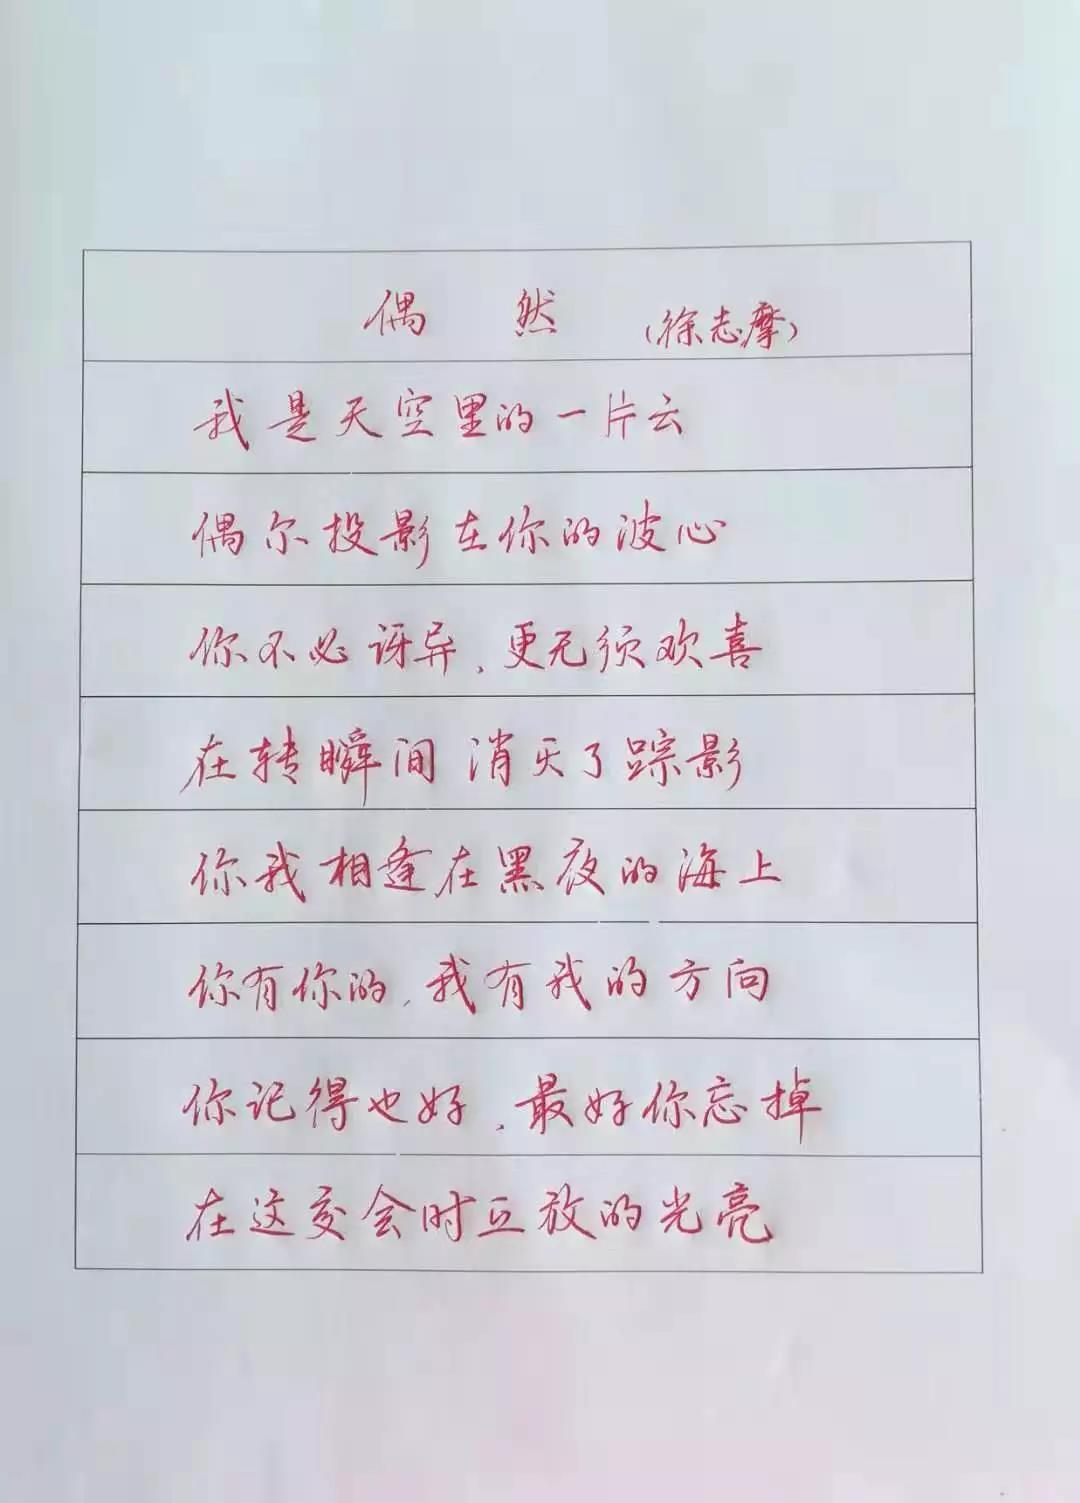 偶 然 (徐志摩)
我是天空里的一片云
偶尔投影在你的波心
你不必讶异,更无须欢喜
在转瞬间 消灭了踪影
你我相逢在黑夜的海上
你有你的,我有我的方向
你记得也好,最好你忘掉
在这交会时互放的光亮